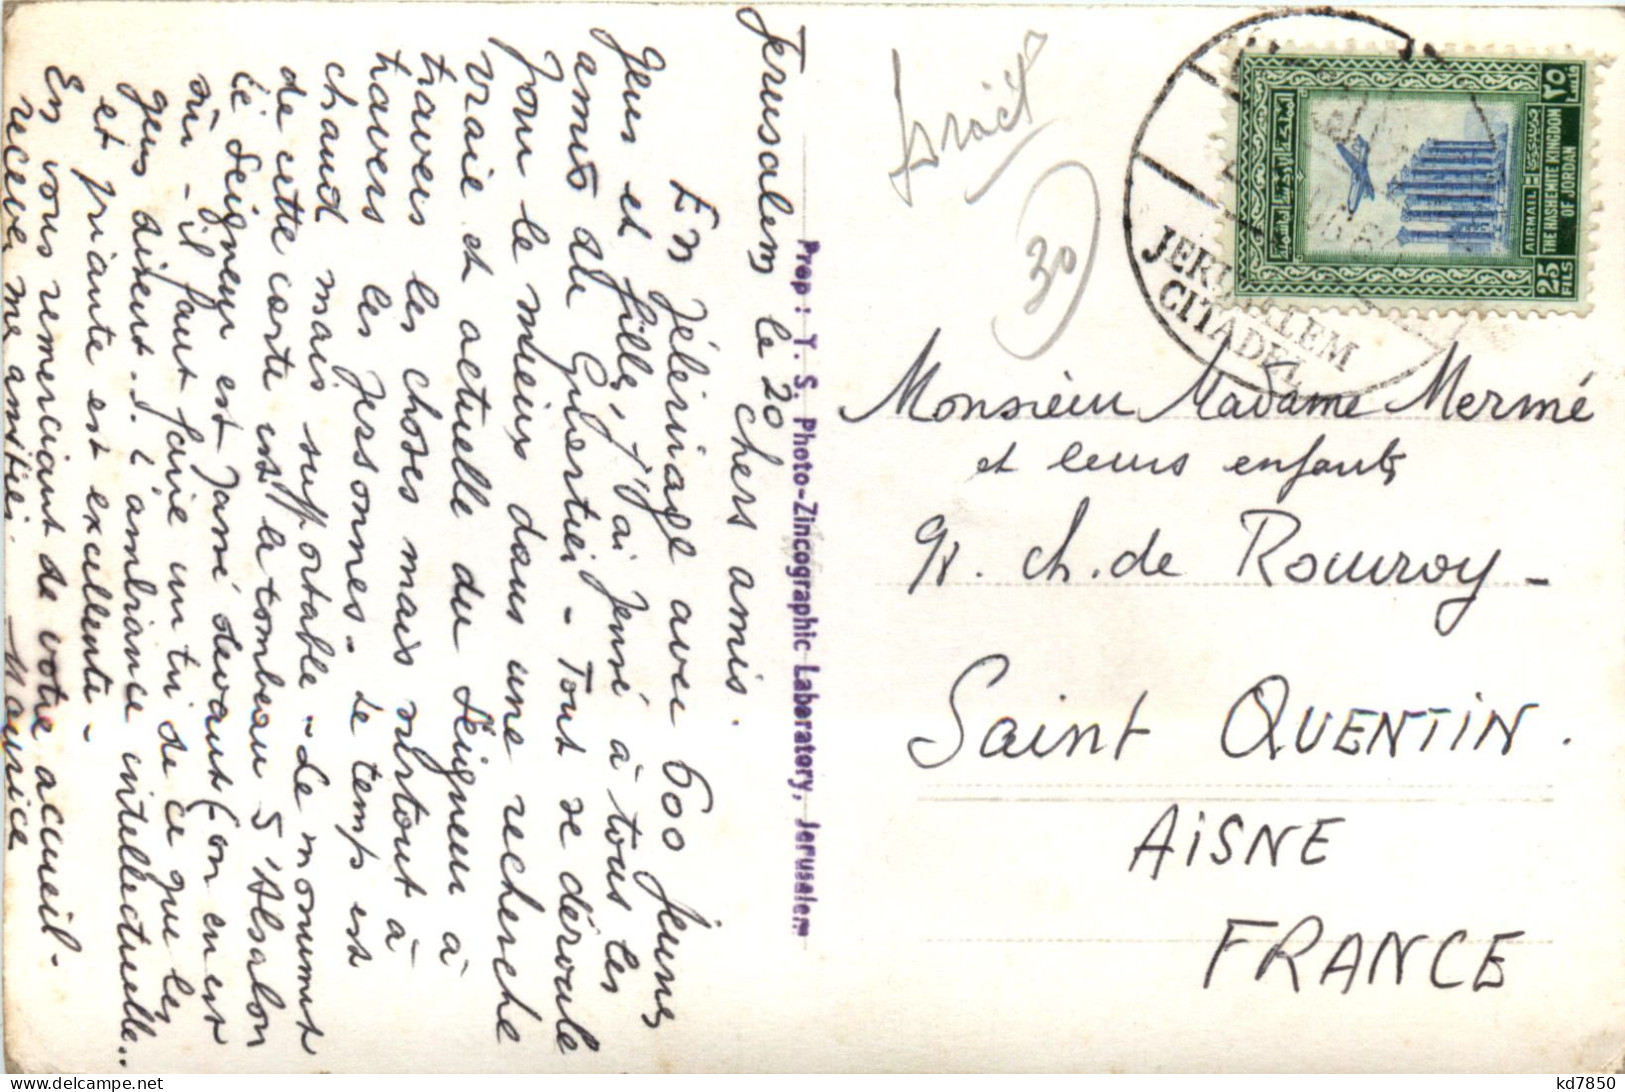 Jerusalem le 20
Chers amis.
En pélérinage avec 600 jeunes
gens et filles, j'ai pensé à tous les
amis du Quartier - Tout se déroule
pour le mieux dans une recherche
vraie et actuelle du Seigneur à
travers les choses mais surtout à
travers les personnes - Le temps est
chaud mais supportable - Le monument
de cette carte est le tombeau d'Absalon
Le Seigneur est passé devant (on en est
sûr - il faut faire un tri de ce que les
gens disent...) L'ambiance intellectuelle..
et priante est excellente -
En vous remerciant de votre accueil -
recevez mes amitiés. Maurice
Prop : T. S. Photo-Zincographic Labaratory, Jerusalem
Israël
30
JERUSALEM
CITADEL
المملكة الأردنية الهاشمية
٢٥
فلسا
25
FILS
AIRMAIL
THE HASHEMITE KINGDOM
OF JORDAN
Monsieur Madame Mermé
et leurs enfants
9r. ch. de Rouvroy -
Saint QUENTIN.
AISNE
FRANCE
kd7850